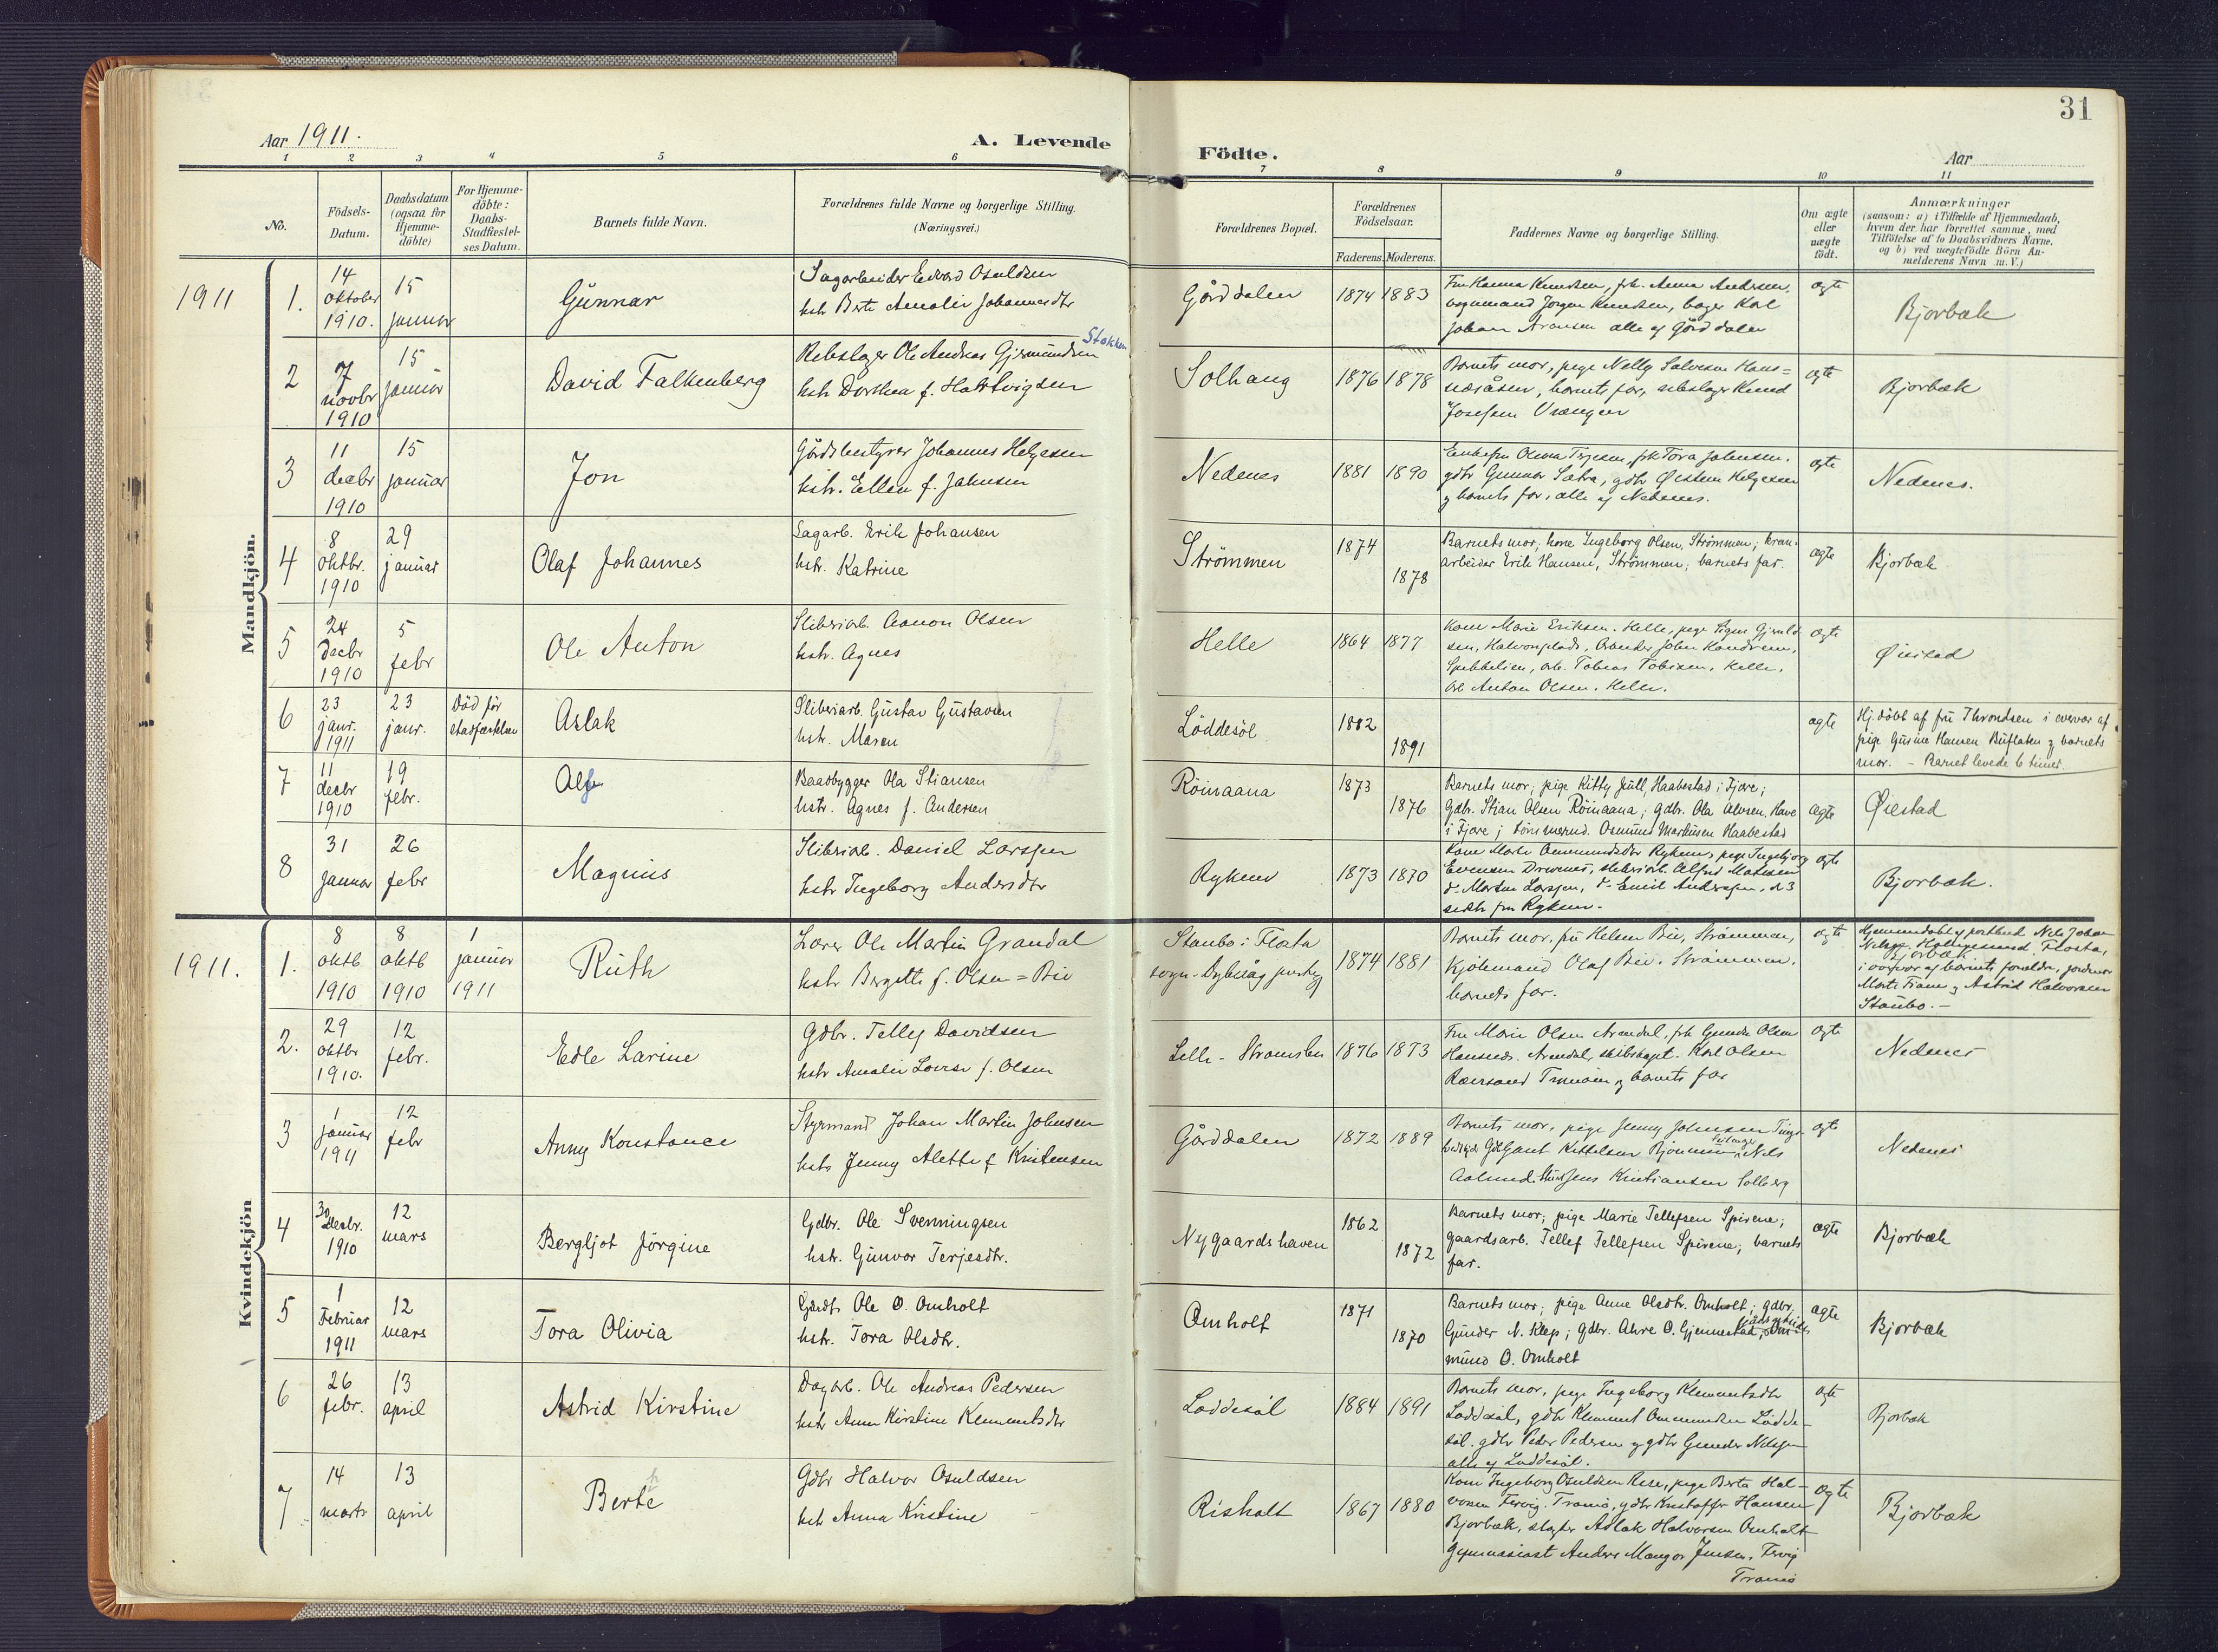 31
Aar 1911.
A. Levende
Födte.
Aar
1 2 3 4 5 6 7 8 9 10 11
No.
Födsels-
Datum.
Daabsdatum
(ogsaa for
Hjemme-
döbte)
For Hjemme-
döbte:
Daabs-
Stadfæstel-
ses Datum.
Barnets fulde Navn.
Forældrenes fulde Navne og borgerlige Stilling.
(Næringsvei.)
Forældrenes Bopæl.
Forældrenes
Födselsaar.
Faderens. Moderens.
Faddernes Navne og borgerlige Stilling.
Om ægte
eller
uægte
födt.
Anmærkninger
(saasom: a) i Tilfælde af Hjemmedaab,
hvem der har forrettet samme, med
Tilföielse af to Daabsvidners Navne,
og b) ved uægtefödte Börn An-
melderens Navn m. V.)
Mandkjön.
1911
1.
14
oktober
1910.
15
januar
Gunnar
Sagarbeider Edvard Osuldsen
hstr Berte Amalie Johannesdtr
Gårddalen
1874 1883
Fru Hanna Knudsen, frk. Anna Andersen,
vognmand Jørgen Knudsen, bager Karl
Johan Aronsen alle af Gårddalen
ægte
Bjorbæk
2
7
novbr
1910
15
januar
David Falkenberg
Stokken
Rebslager Ole Andreas Gjermundsen
hstr Dorthea f. Hartvigsen
Solhaug
1876 1878
Barnets mor, pige Nelly Salvesen Hans=
næsåsen, barnets far, rebslager Knud
Josefsen Vrængen
ægte
Bjorbæk
3
11
decbr
1910
15
januar
Jon
Gårdsbestyrer Johannes Helgesen
hstr. Ellen f. Jahnsen
Nedenes
1881 1890
Enkefru Olena Terjesen, frk Tora Johnsen,
gdbr Gunnar Sætra, gdbr Øistein Helgesen
og barnets far, alle af Nedenes.
ægte
Nedenes.
4
8
oktbr.
1910
29
januar
Olaf Johannes
Sagarb. Erik Johansen
hstr. Katrine
Strömmen
1874
1878
Barnets mor; kone Ingeborg Olsen, Strömmen; kran-
arbeider Erik Hansen, Strömmen; barnets far.
ægte
Bjorbæk
5
24
decbr
1910
5
febr
Ole Anton
Sliberiarb. Aanon Olsen
hstr. Agnes
Helle
1864 1877
Kone Marie Eriksen. Helle, pige Signe
sen, Arbeider John
arb. Tobias Tobisen, Helle,
arb Anton Olsen. Helle.
ægte
Øiestad
6
23
janr.
1911
23
janr.
Död för
stadfæstelsen
Aslak
Sliberiarb. Gustav Gustavsen
hstr. Maren
Löddesöl
1882
1891
ægte
Hj.döbt af fru Throndsen i overvær af
pige Gusine Hansen Buflaten og barnets
mor. - Barnet levede 6 timer.
7
11
decbr
1910
19
febr.
Alf
Baadbygger Ola Stiansen
hstr. Agnes f. Andersen
Röinaana
1873
1876
Barnets mor; pige Kitty Juell, Haabestad i Fjære;
Gdbr. Stian Olsen Röinaana; gdbr. Ola Alvsen, Have
i Fjære; tömmermd. Osmund Markusen Haabestad
Ægte
Øiestad
8
31
januar
26
febr
Magnus
Sliberiarb. Daniel Larssen
hstr Ingeborg Andersdtr
Rykene
1873 1870
Kone Marte Ommundsdtr Rykene, pige Ingeborg
Evensen sliberiarb. Alfred Madsen
d. Morten Larssen, d. Emil Anderssen, de 3
sidste fra Rykene.
ægte
Bjorbæk.
Kvindekjön
1911.
1.
8
oktb
1910
8
oktb
1910
1
januar
1911
Ruth
Lærer Ole Martin Grandal
hstr Bergitte f. Olsen = Bie
Staubo i Flosta
sogn - Dybvåg prestegj
1874 1881
Barnets mor, fru Helene Bie, Strømmen,
Kjøbmand Olaf Bie. Strømmen.
barnets far.
ægte
Hjemmedøbt af postbud Nils Johan
Nilsen Holmesund, Flosta,
Bjorbæk
i overvær af barnets forældre, jordmor
Marte Fiane og Astrid Halvorsen
Staubo. -
2.
29
oktbr
1910.
12
febr.
Edle Larine
Gdbr. Tellef Davidsen
hstr Amalie Lovise f. Olsen
Lille - Strømsbu
1876 1873
Fru Marie Olsen Arendal, frk Gunda Olsen
Arendal, skibskapt. Karl Olsen
Tromøen og barnets far
ægte
Nedenes
3
1
januar
1911
12
febr
Anny Konstance
Styrmand Johan Martin Johnsen
hstr Jenny Alette f. Kristensen
Gårddalen
1872 1889
Barnets mor, pige Jenny Johnsen
Gaut Kittelsen Nils
Aalund. Jens Kristiansen Solberg
ægte
Nedenes
4
30
Decbr.
1910
12
mars
Bergljot Jörgine
Gdbr. Ole Svenningsen
hstr. Gunvor Terjesdtr.
Nygaardshaven
1862
1872
Barnets mor; pige Marie Tellefsen Spirene;
gaardsarb. Tellef Tellefsen Spirene; barnets
far.
ægte
Bjorbæk
5
1
Februar
1911
12
mars
Tora Olivia
Gårdb Ole O. Omholt
hstr. Tora Olsdtr.
Omholt
1871
1870
Barnets mor; pige Anne Olsdtr. Omholt; gdbr.
Gunder N. Klep; gdbr. Ahre O. Gjennestad; Om-
mund O. Omholt
ægte
Bjorbæk
6
26
febr.
13
april
Astrid Kirstine
Dagarb. Ole Andreas Pedersen
hstr Anne Kirstine Klemmetsdtr
Løddesøl
1884 1891
Barnets mor, pige Ingeborg Klemmetsdtr
Løddesøl, gdbr Klemmet Ommundsen Lødde-
søl. gdbr Peder Pedersen og gdbr Gunder Nilsen
alle af Løddesøl.
ægte
Bjorbæk
7
14
marts
13
april
Berte
Gdbr Halvor Osuldsen
hstr Anna Kristine
Risholt
1867 1880
Kone Ingeborg Osuldsen Rise, pige Berta Hal-
vorsen Færvig. Tromø, gdbr Kristoffer Hansen
Bjorbæk, slagter Aslak Halvorsen Omholt
Gymnasiast Anders Mangor Jensen, Færvig
Tromø
ægte
Bjorbæk